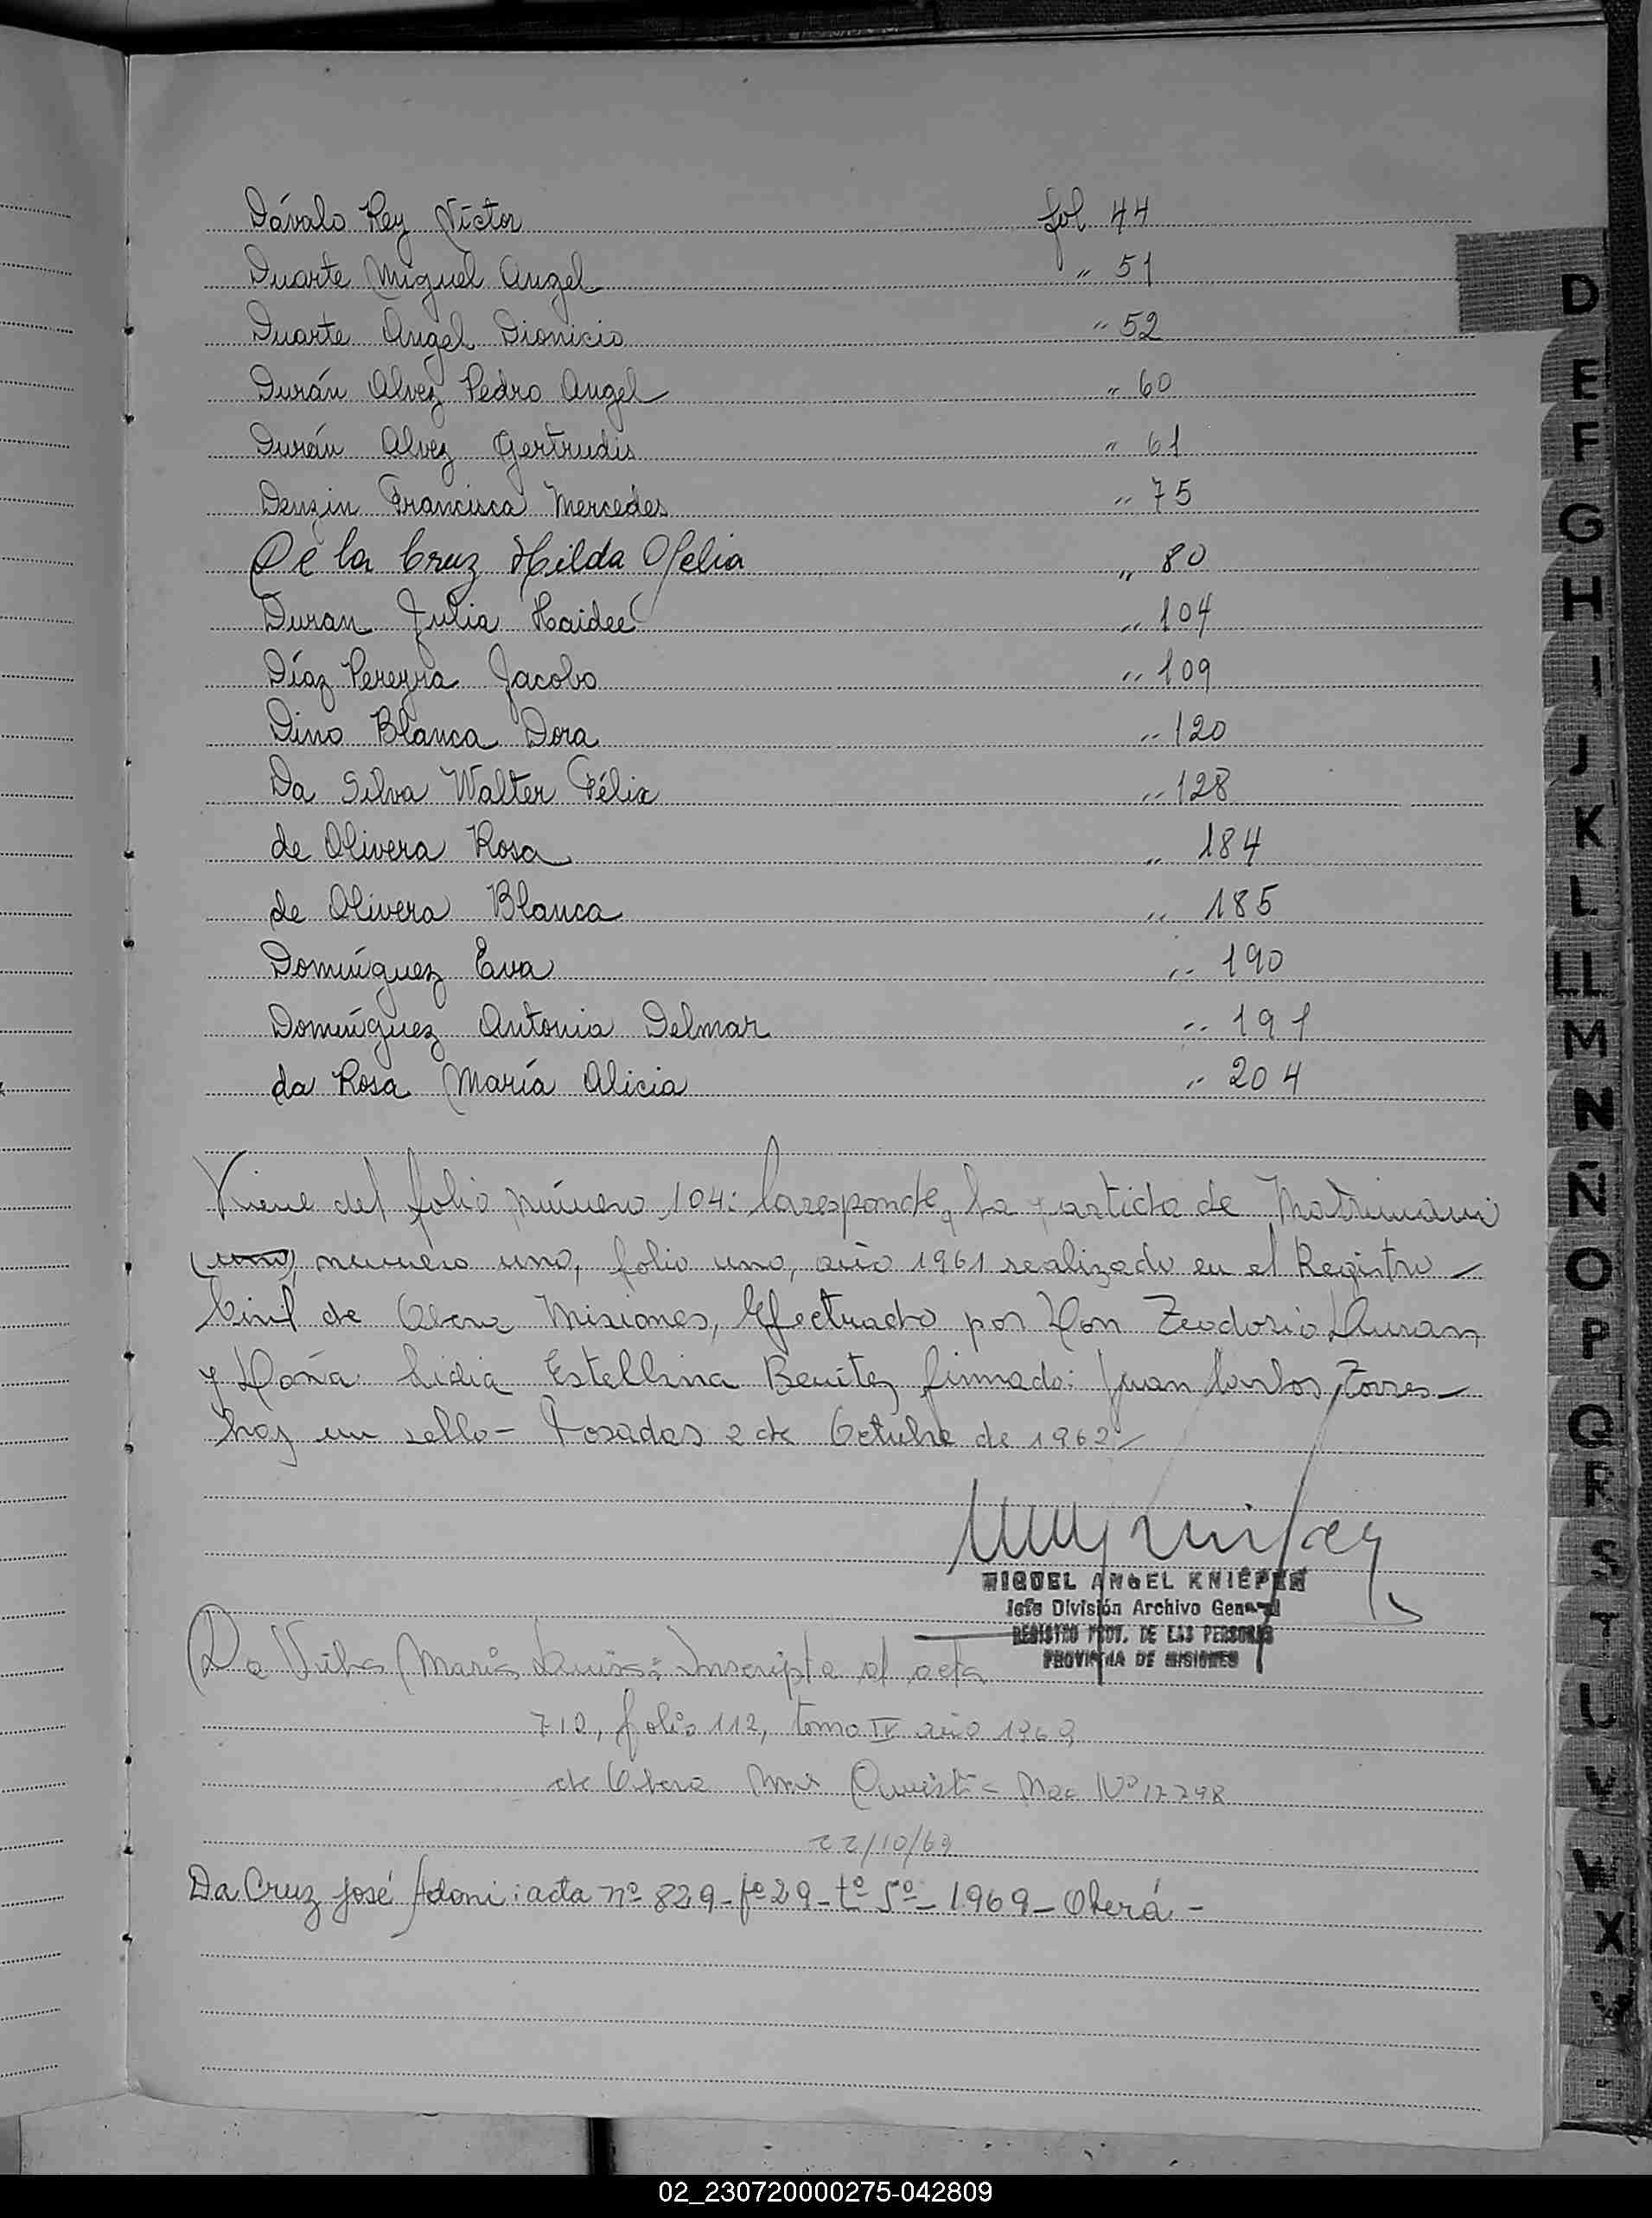 Dávalo Rey Víctor fol 44
Duarte Miguel Angel " 51
Duarte Angel Dionicio " 52
Durán Alvez Pedro Angel " 60
Durán Alvez Gertrudis " 61
Denzin Francisca Mercedes " 75
De la Cruz Hilda Ofelia " 80
Duran Julia Haideé " 104
Díaz Pereyra Jacobo " 109
Dino Blanca Dora " 120
Da Silva Walter Félix " 128
de Olivera Rosa " 184
de Olivera Blanca " 185
Domínguez Eva " 190
Domínguez Antonia Delmar " 191
da Rosa María Alicia " 204
Viene del folio número 104: Corresponde, la partida de Matrimonio
(uno) numero uno, folio uno, año 1961 realizado en el Registro -
Civil de Obera Misiones, Efectuado por Don Teodorio Duran
y Doña Lidia Estellina Benitez firmado: Juan Carlos Torres -
hay un sello - Posadas 2 de Octubre de 1962 -
MIGUEL ANGEL KNIEPER
Jefe División Archivo General
REGISTRO PROV. DE LAS PERSONAS
PROVINCIA DE MISIONES
Da María Luisa: Inscripta al acta
710, folio 112, tomo IV año 1969
de Obera Nº 17298
22/10/69
Da Cruz José Adoni: acta nº 829 - fº 29 - tº 5º - 1969 - Oberá -
D
E
F
G
H
I
J
K
L
LL
M
N
Ñ
O
P
Q
R
S
T
U
V
W
X
Y
02_230720000275-042809